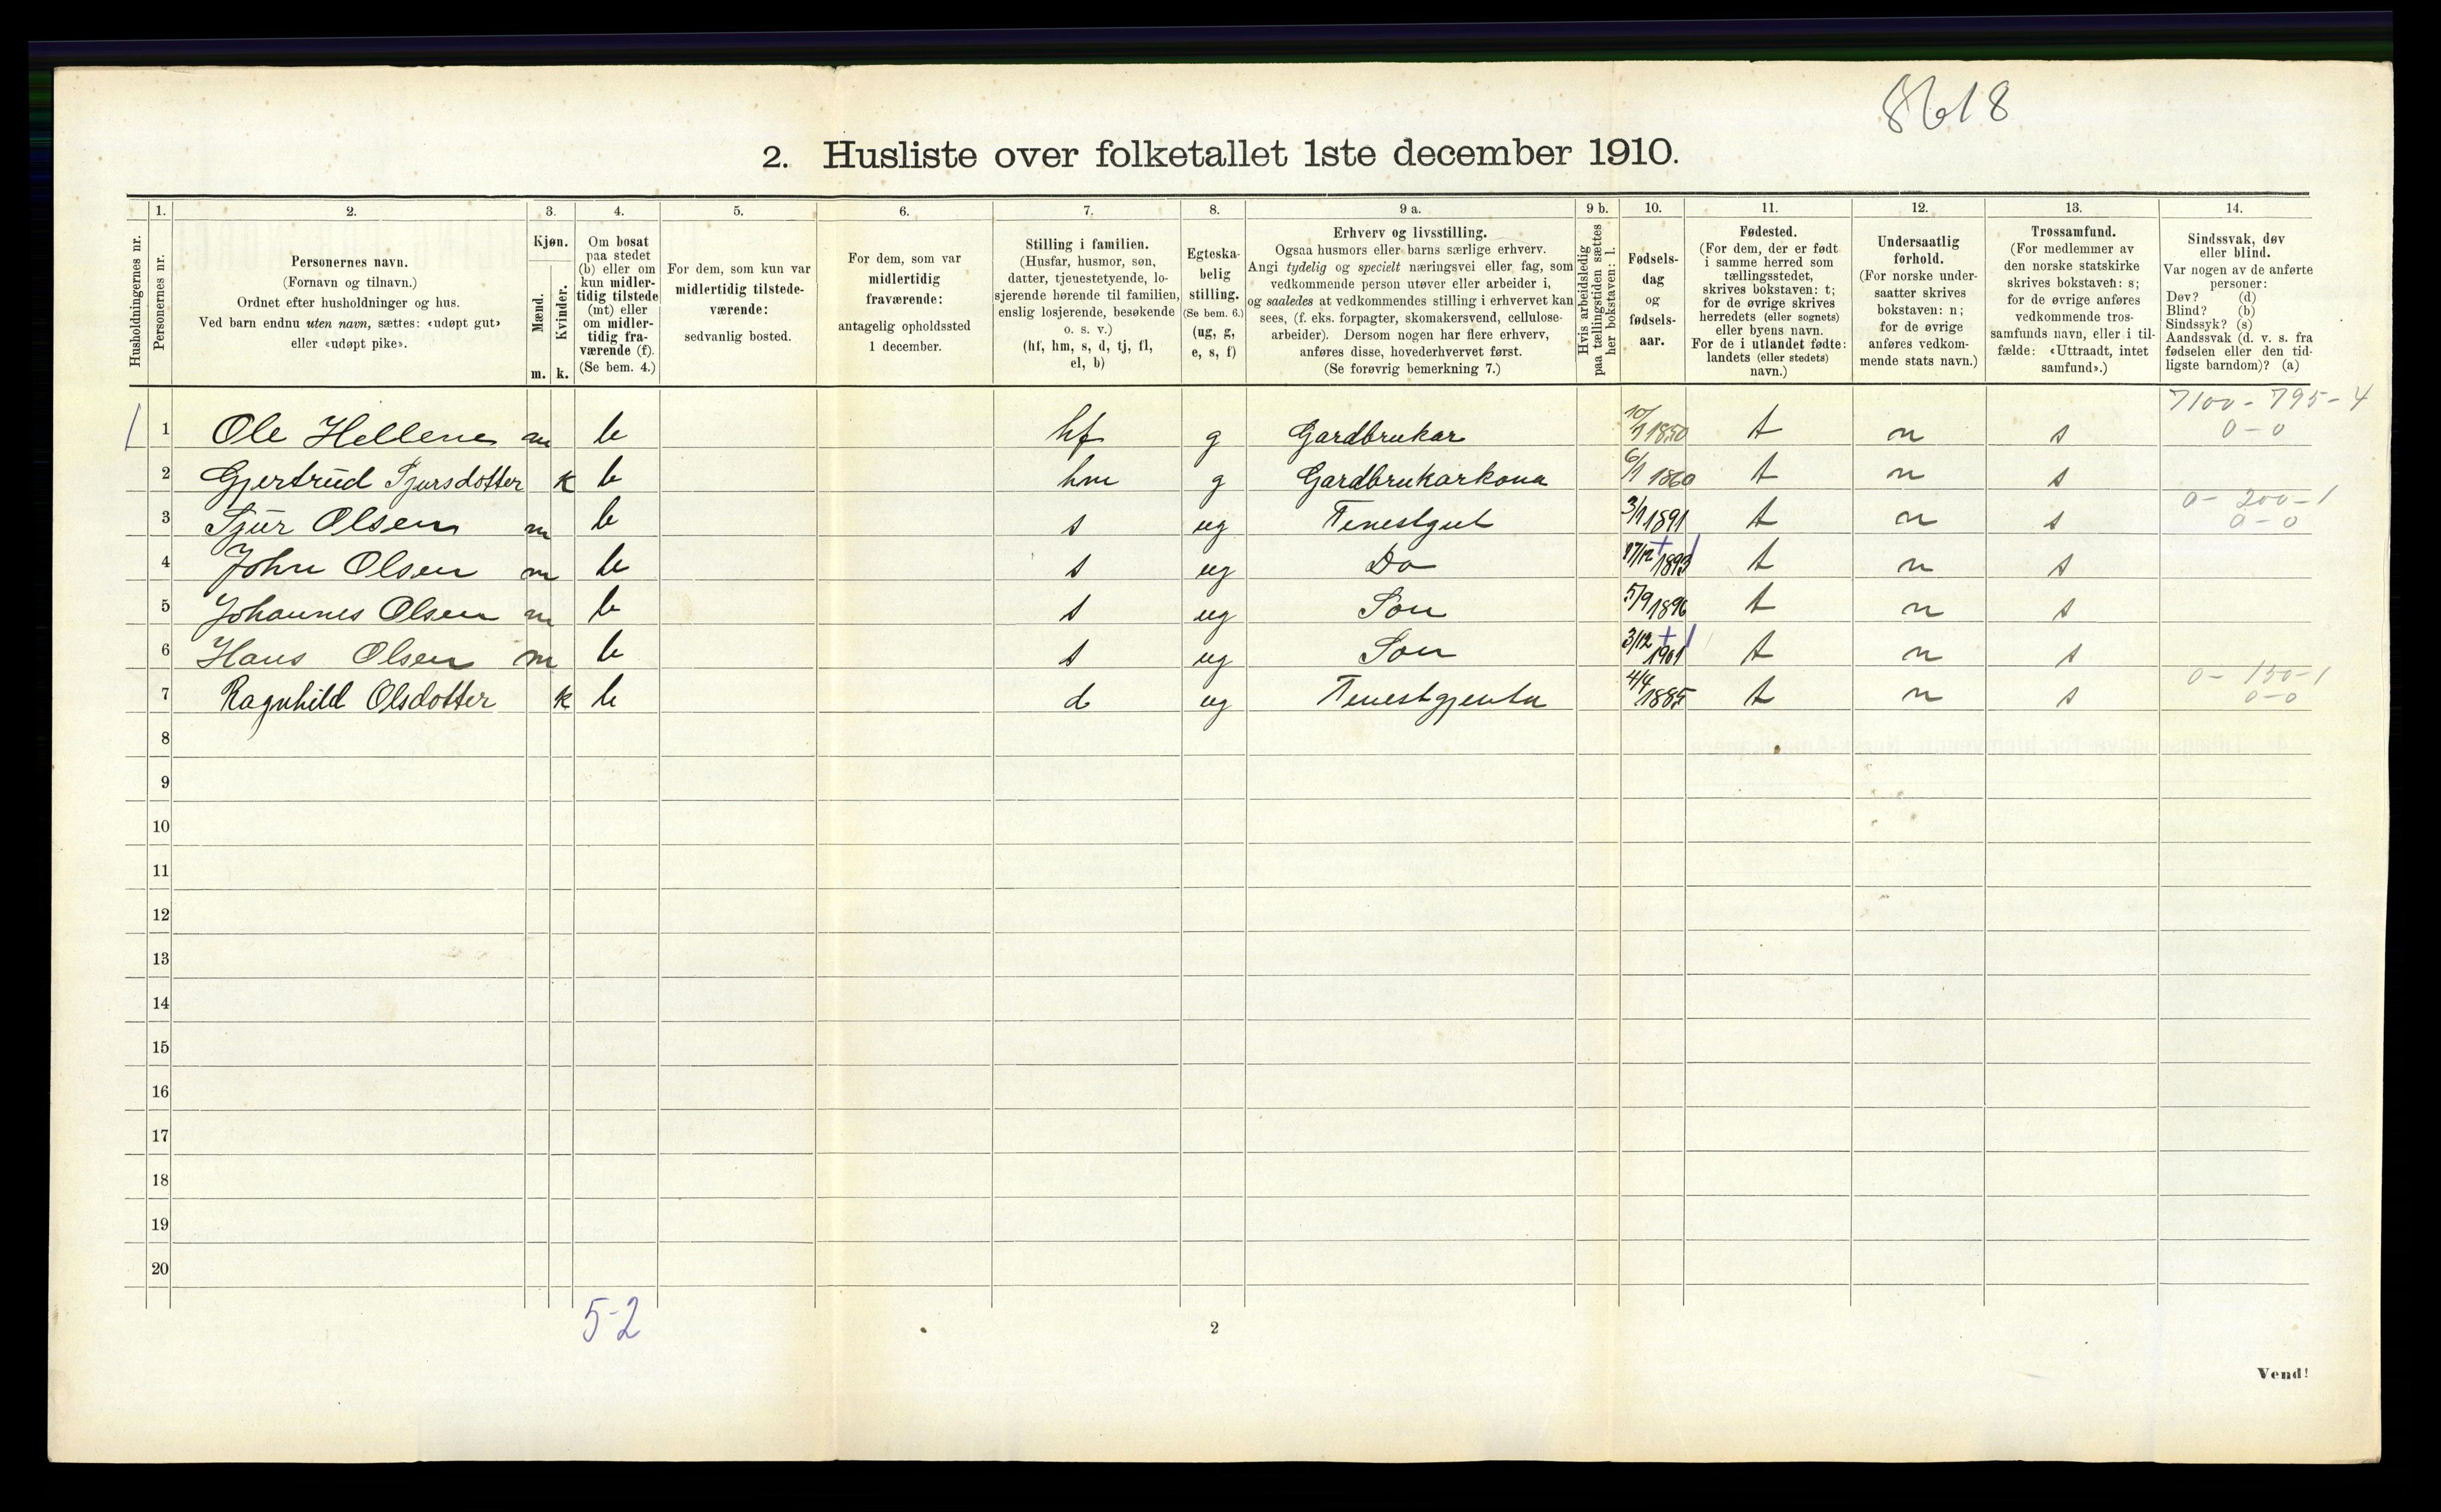 8618
2. Husliste over folketallet 1ste december 1910.
Husholdningernes nr.
1.
Personernes nr.
2.
Personernes navn.
(Fornavn og tilnavn.)
Ordnet efter husholdninger og hus.
Ved barn endnu uten navn, sættes: «udøpt gut»
eller «udøpt pike».
3.
Kjøn.
Mænd.
Kvinder.
m. k.
4.
Om bosat
paa stedet
(b) eller om
kun midler-
tidig tilstede
(mt) eller
om midler-
tidig fra-
værende (f).
(Se bem. 4.)
5.
For dem, som kun var
midlertidig tilstede-
værende:
sedvanlig bosted.
6.
For dem, som var
midlertidig
fraværende:
antagelig opholdssted
1 december.
7.
Stilling i familien.
(Husfar, husmor, søn,
datter, tjenestetyende, lo-
sjerende hørende til familien,
enslig losjerende, besøkende
o. s. v.)
(hf, hm, s, d, tj, fl,
el, b)
8.
Egteska-
belig
stilling.
(Se bem. 6.)
(ug, g,
e, s, f)
9 a.
Erhverv og livsstilling.
Ogsaa husmors eller barns særlige erhverv.
Angi tydelig og specielt næringsvei eller fag, som
vedkommende person utøver eller arbeider i,
og saaledes at vedkommendes stilling i erhvervet kan
sees, (f. eks. forpagter, skomakersvend, cellulose-
arbeider). Dersom nogen har flere erhverv,
anføres disse, hovederhvervet først.
(Se forøvrig bemerkning 7.)
9 b.
Hvis arbeidsledig
paa tællingstiden sættes
her bokstaven: l.
10.
Fødsels-
dag
og
fødsels-
aar.
11.
Fødested.
(For dem, der er født
i samme herred som
tællingsstedet,
skrives bokstaven: t;
for de øvrige skrives
herredets (eller sognets)
eller byens navn.
For de i utlandet fødte:
landets (eller stedets)
navn.)
12.
Undersaatlig
forhold.
(For norske under-
saatter skrives
bokstaven: n;
for de øvrige
anføres vedkom-
mende stats navn.)
13.
Trossamfund.
(For medlemmer av
den norske statskirke
skrives bokstaven: s;
for de øvrige anføres
vedkommende tros-
samfunds navn, eller i til-
fælde: «Uttraadt, intet
samfund».)
14.
Sindssvak, døv
eller blind.
Var nogen av de anførte
personer:
Døv? (d)
Blind? (b)
Sindssyk? (s)
Aandssvak (d. v. s. fra
fødselen eller den tid-
ligste barndom)? (a)
7100 - 795 - 4
1 1 Ole Hellene m b hf g Gardbrukar 10/1 1850 t n s 0 - 0
2 Gjertrud Sjursdotter k b hm g Gardbrukarkona 6/1 1860 t n s
0 - 200 - 1
3 Sjur Olsen m b s ug Tenestgut 3/1 1891 t n s 0 - 0
4 John Olsen m b s ug Do 17/12 1893 t n s
5 Johannes Olsen m b s ug Son 5/9 1896 t n s
6 Hans Olsen m b s ug Son 3/12 1901 t n s
0 - 150 - 1
7 Ragnhild Olsdotter k b d ug Tenestgjenta 4/4 1885 t n s 0 - 0
8
9
10
11
12
13
14
15
16
17
18
19
20
5-2
2
Vend!